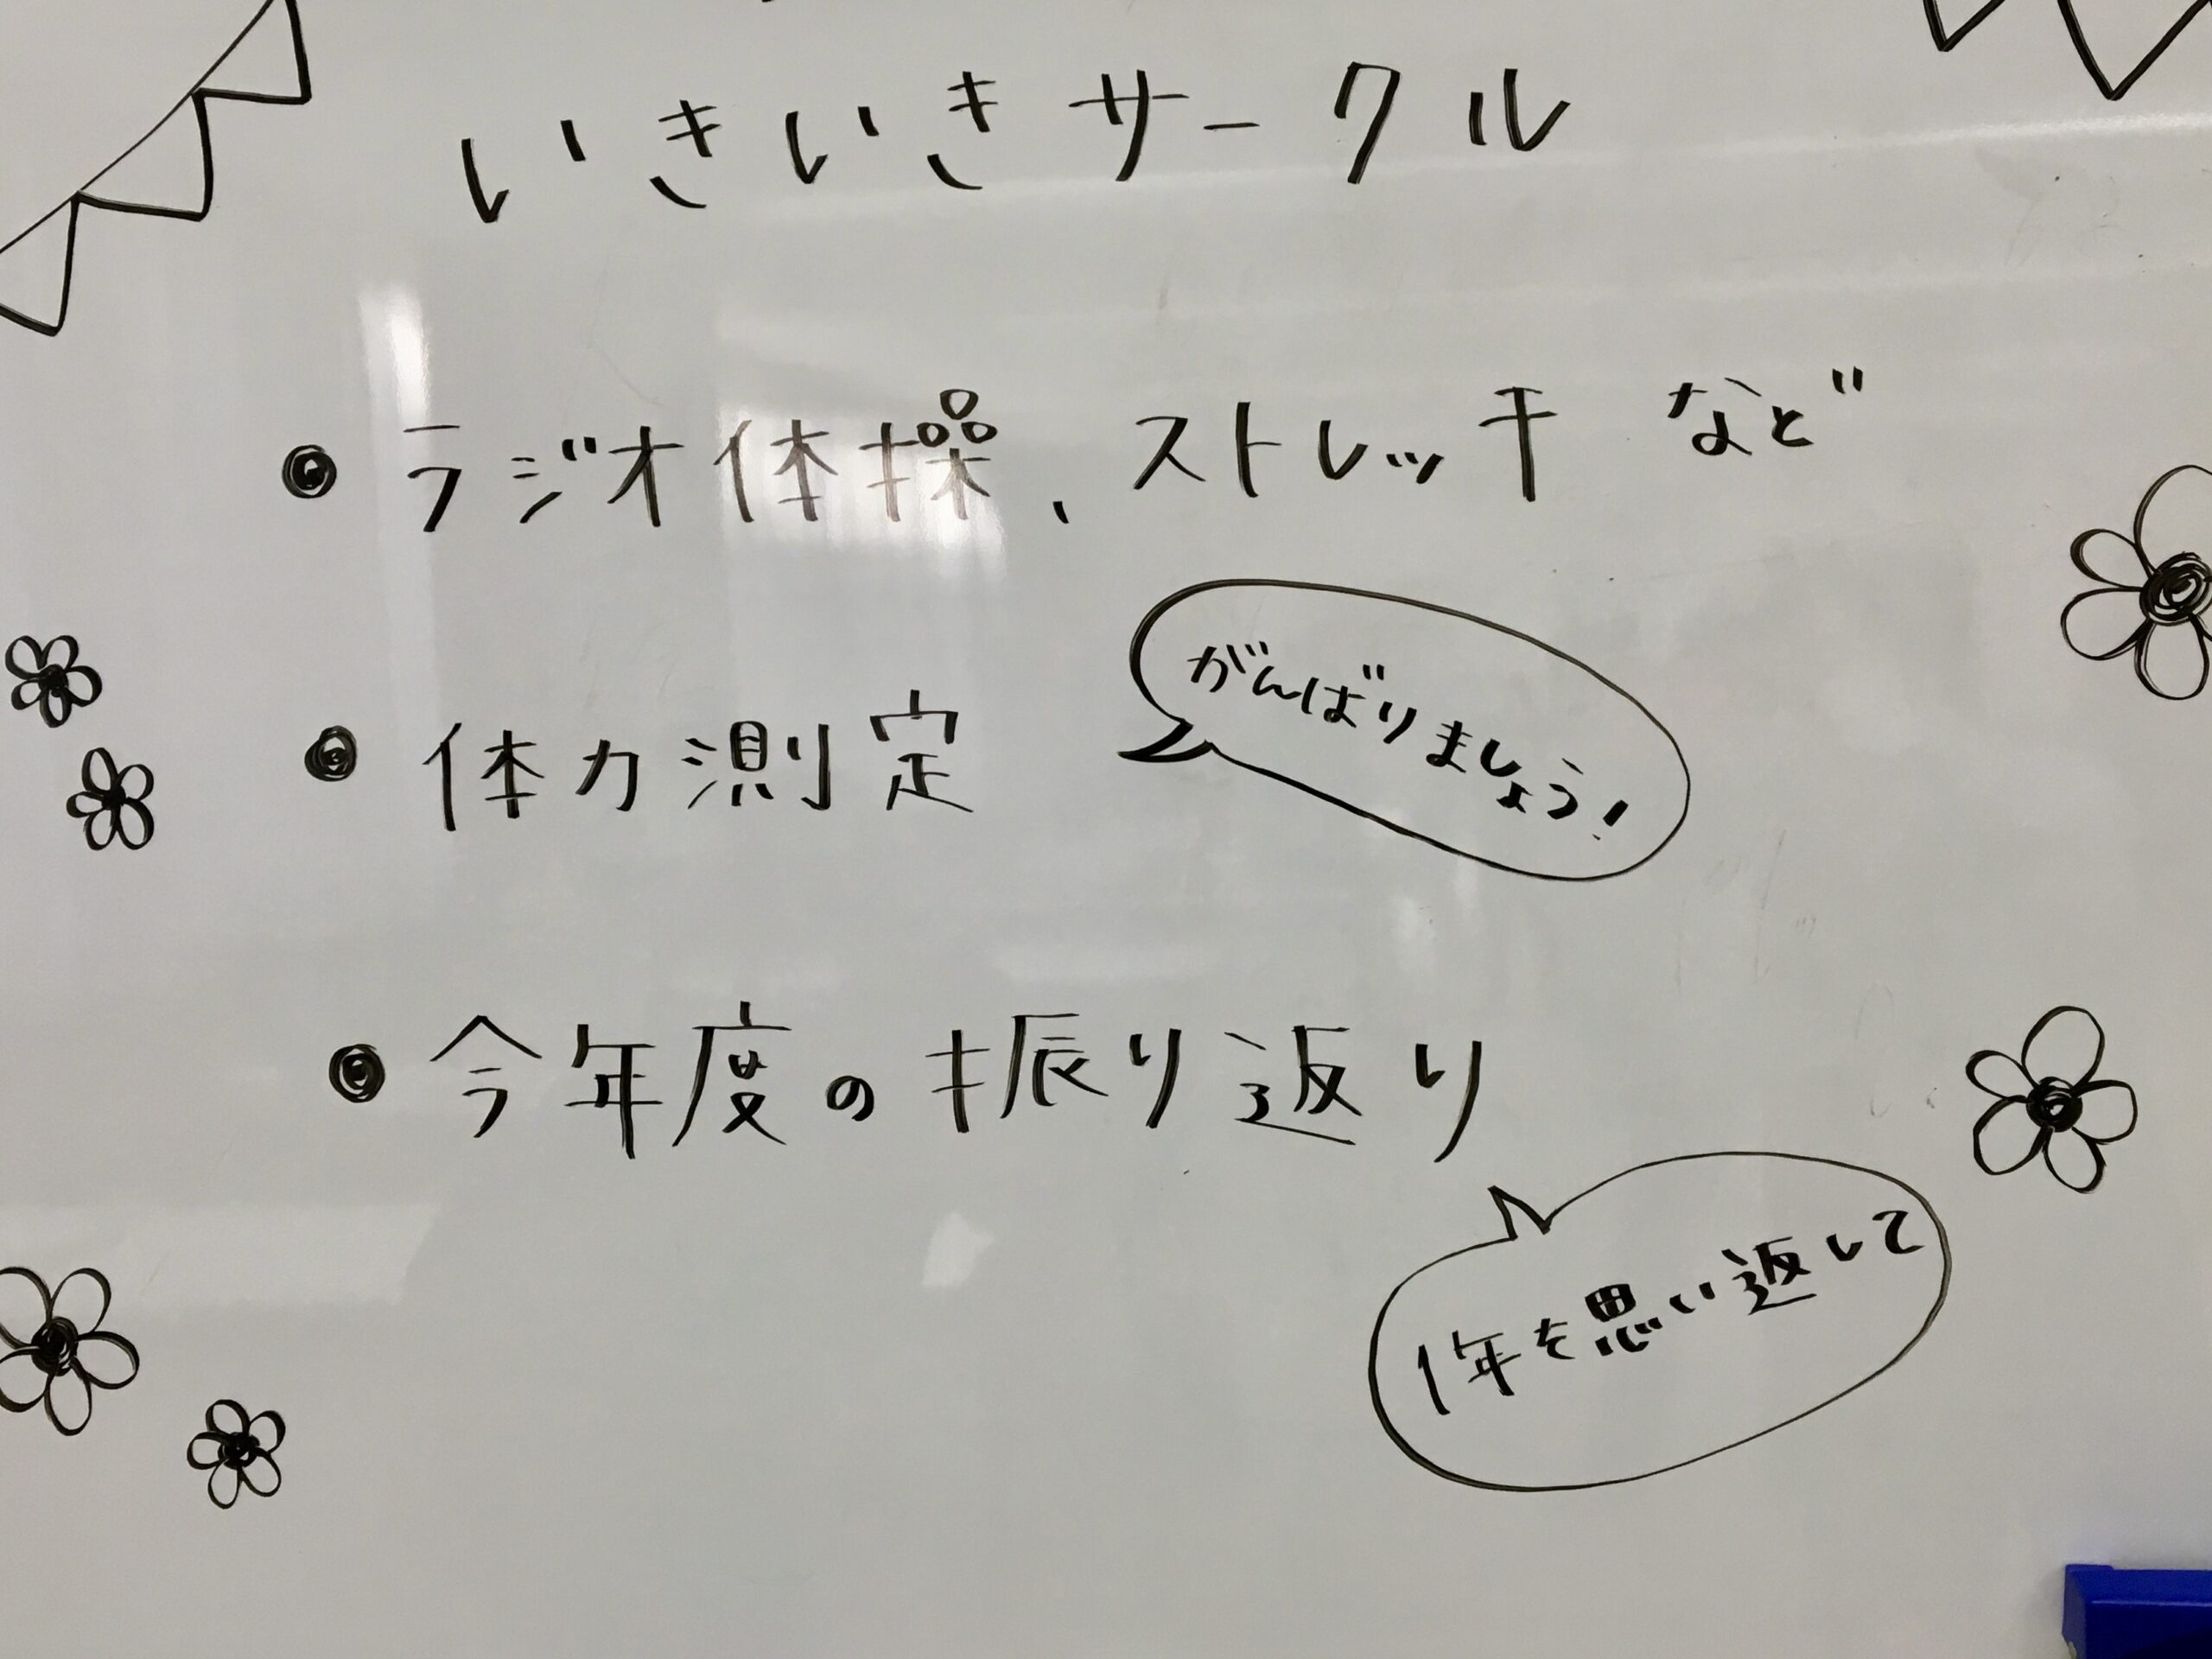 いきいきサークル
● ラジオ体操、ストレッチ など
● 体力測定
がんばりましょう!
● 今年度の振り返り
1年を思い返して